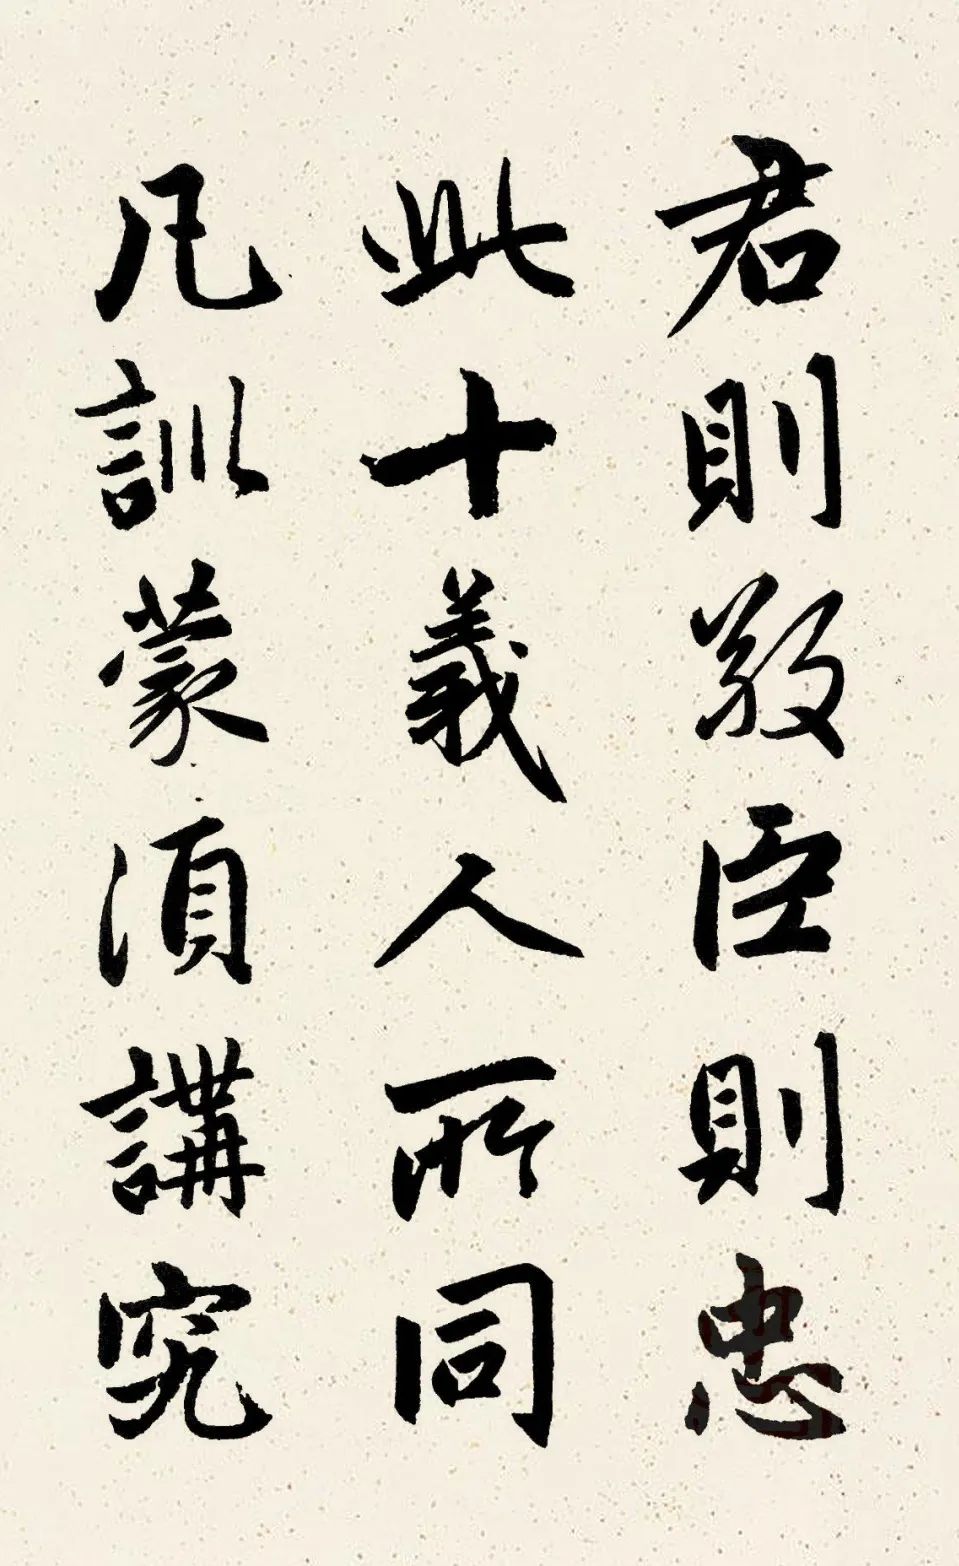 君則敬臣則忠
此十義人所同
凡訓蒙須講究